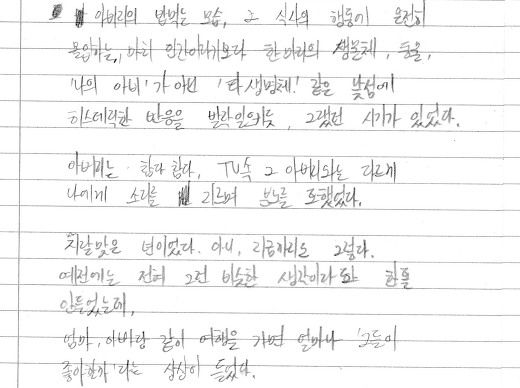 아버지의 밥먹는 모습, 그 식사의 행동에 온전히
몰입하는, 마치 인간이라기보다 한마리의 생물체, 동물,
'나의 아버'가 아닌 '타 생명체' 같은 낯섦에
히스테릭한 반응을 발작일으키듯, 그랬던 시기가 있었다.
아버지는 참다 참다, TV속 그 아버지와는 다르게
나에게 소리를 지르며 분노를 표했었다.
지랄맞은 년이었다. 아니, 지금까지도 그렇다.
예전에는 전혀 그런 비슷한 생각이라도 한들
안들었는데,
엄마, 아빠랑 같이 여행을 가면 얼마나 '그들이
좋아할까' 라는 상상이 들었다.